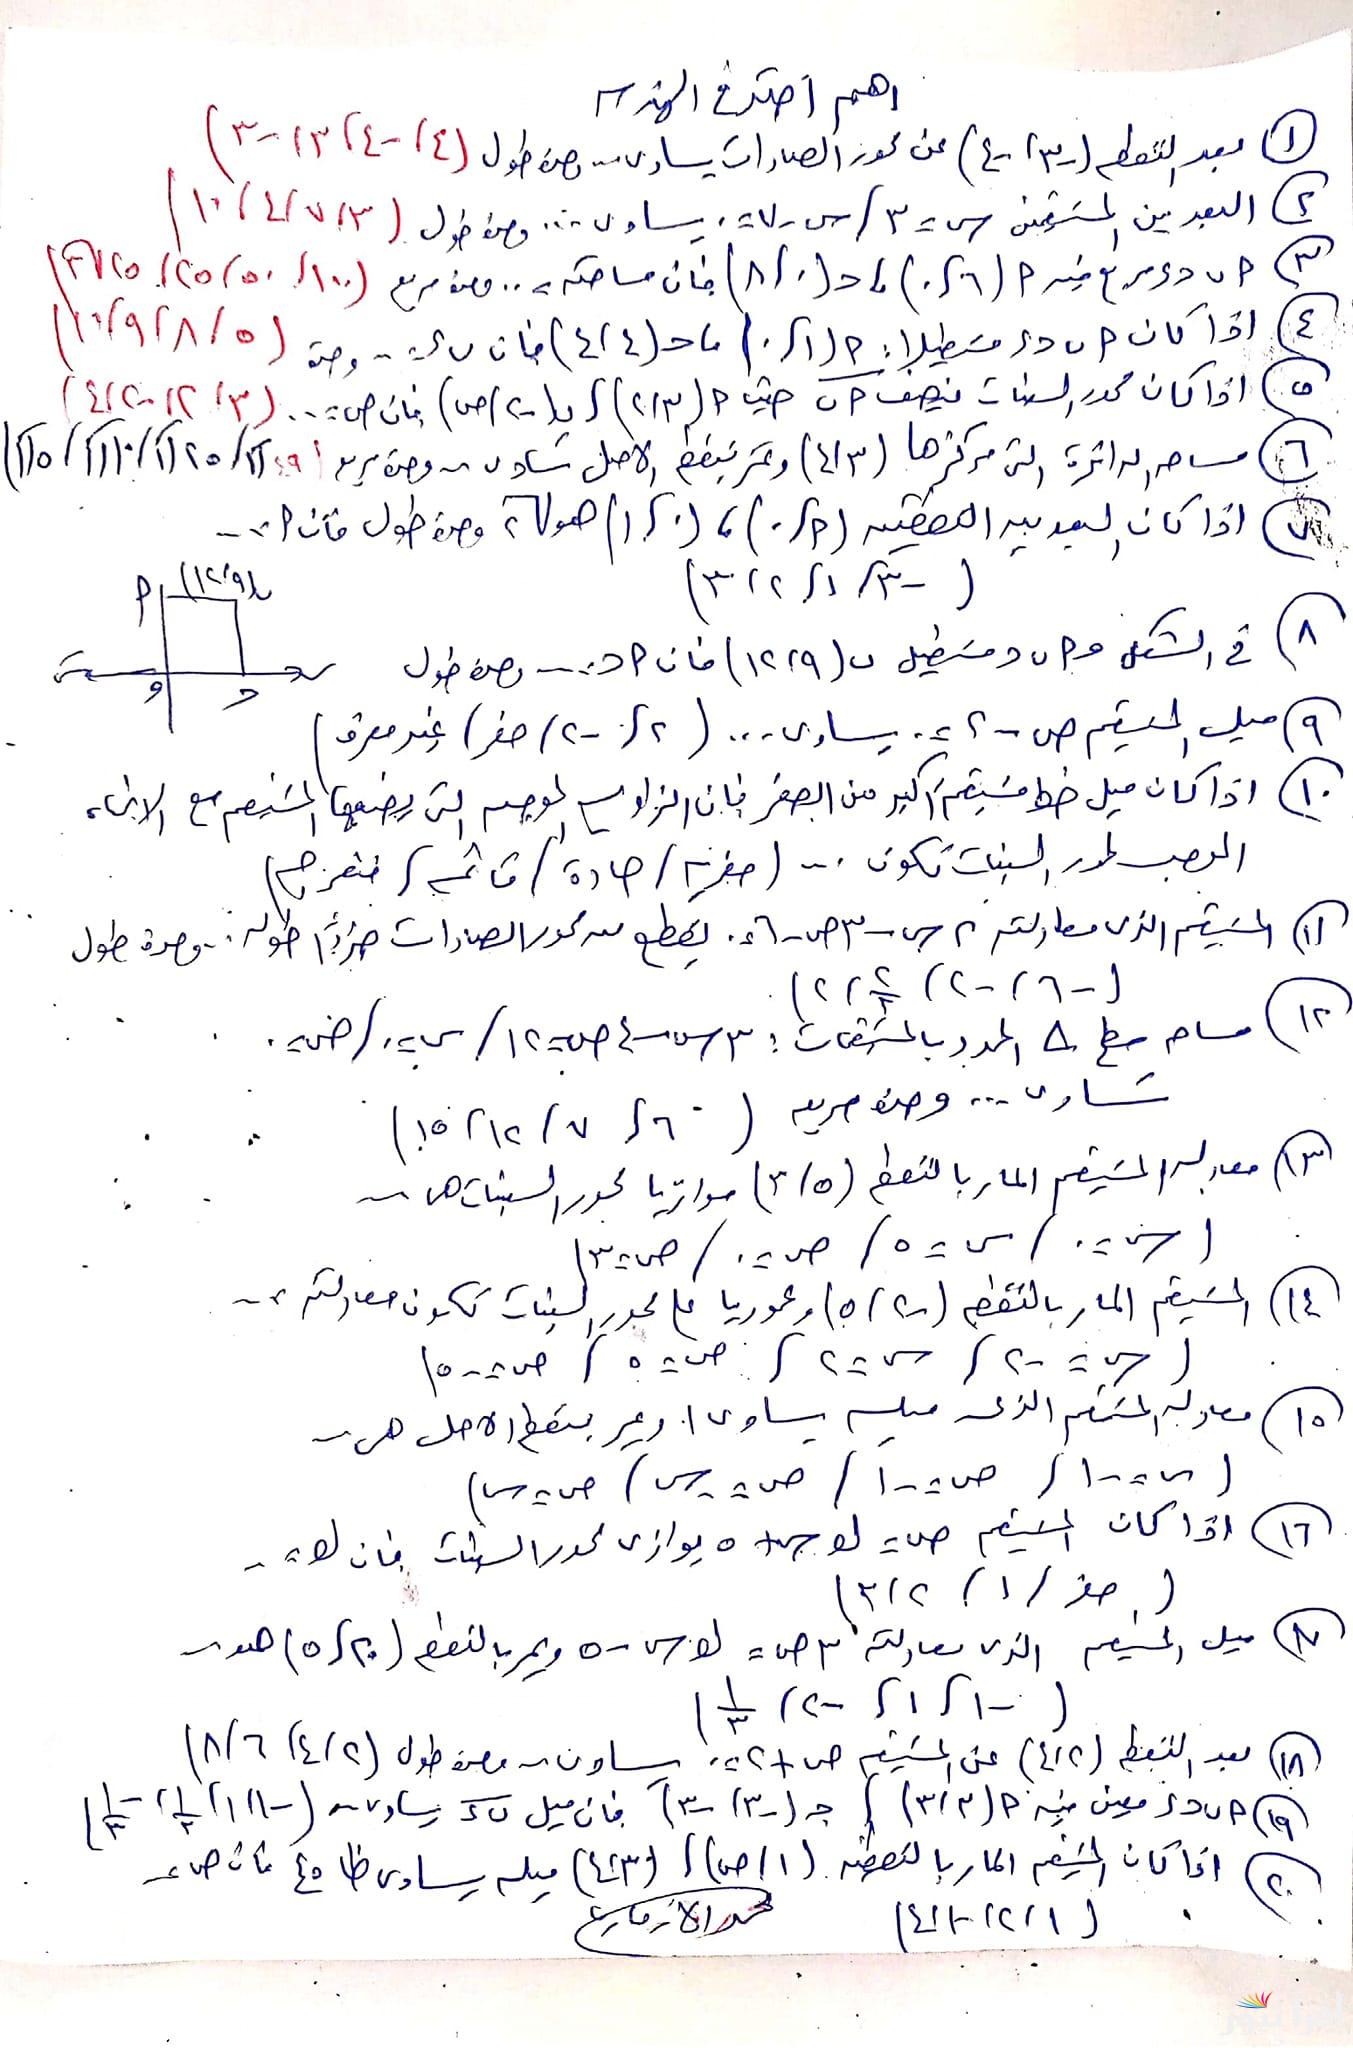 اهم اختر فى الهندسه
١ بعد النقطه (-٣، -٤) عن محور الصادات يساوى ... وحدة طول (٤، -٤، ٣، -٣)
٢ البعد بين المستقيمين س = ٣ / س - ٧ = ٠ يساوى ... وحدة طول (٣ / ٧ / ٤ / ١٠)
٣ ٩ ب ح د مربع فيه ٩ (٦، ٠) ، ح (٠، ٨) فان مساحته = .. وحدة مربع (١٠٠ / ٥٠ / ٢٥ /
٤ اذا كان ٩ ب ح د مستطيلا : ٩ (١، ٠) ، ح (٤، ٤) فان ب د = ... وحدة (٥ / ٨ / ٩ / ١٠)
٥ اذا كان محور السينات ينصف ٩ ب حيث ٩ (٣، ٢) ، ب (-٢، ص) فان ص = ... (٣ / ٢ / -٢ / ٤)
٦ مساحه الدائرة التى مركزها (٣، ٤) وتمر بنقطه الاصل تساوى ... وحدة مربع
٧ اذا كان البعد بين النقطتين (٩، ٠) ، (٠، ١) هو √٢ وحدة طول فان ٩ = ...
(-٣ / ١ / ٢ / ٣)
٩ ب (٩، ١٢)
س و ح س
٨ فى الشكل و ٩ ب ح مستطيل ب (٩، ١٢) فان ٩ ح = ... وحدة طول
٩ ميل المستقيم ص - ٢ = ٠ يساوى ... (٢ / -٢ / صفر / غير معرف)
١٠ اذا كان ميل خط مستقيم اكبر من الصفر فان الزاويه الموجبه التى يصنعها المستقيم مع الاتجاه
الموجب لمحور السينات تكون ... (صفريه / حادة / قائمه / منفرجه)
١١ المستقيم الذى معادلته ٢ س - ٣ ص - ٦ = ٠ يقطع من محور الصادات جزءًا طوله ... وحدة طول
(-٦ / -٢ / ٢/٣ / ٢)
١٢ مساحه سطح △ المحدد بالمستقيمات : ٣ س - ٤ ص = ١٢ / س = ٠ / ص = ٠
تساوى ... وحدة مربعه (٦ / ٧ / ١٢ / ١٥)
١٣ معادله المستقيم المار بالنقطه (٥، ٣) موازيا محور السينات هى ...
(س = ٠ / س = ٥ / ص = ٠ / ص = ٣)
١٤ المستقيم المار بالنقطه (-٢، ٥) وعموديا على محور السينات تكون معادلته = ...
(س = -٢ / س = ٢ / ص = ٥ / ص = -٥)
١٥ معادله المستقيم الذى ميله يساوى ١ ويمر بنقطه الاصل هى ...
(س = -١ / ص = -١ / ص = -س / ص = س)
١٦ اذا كان المستقيم ص = ك س + ٥ يوازى محور السينات فان ك = ...
(صفر / ١ / ٢ / ٣)
١٧ ميل المستقيم الذى معادلته ٣ ص = ك س - ٥ ويمر بالنقطه هو ...
(-١ / ١ / -٢ / ١/٣)
١٨ بعد النقطه (٢، ٤) عن المستقيم ص + ٢ = ٠ يساوى ... وحدة طول (٢ / ٤ / ٦ / ٨)
١٩ ٩ ب ح د معين فيه ٩ (٣، ٣) ، جـ (-٣، -٣) فان ميل ب د يساوى ... (-١ / ١ / ١/٢ / -١/٣)
٢٠ اذا كان المستقيم المار بالنقطتين (١، ص) ، (٣، ٤) ميله يساوى ظا ٤٥ فان ص = ...
(١ / ٢ / -١ / ٤)